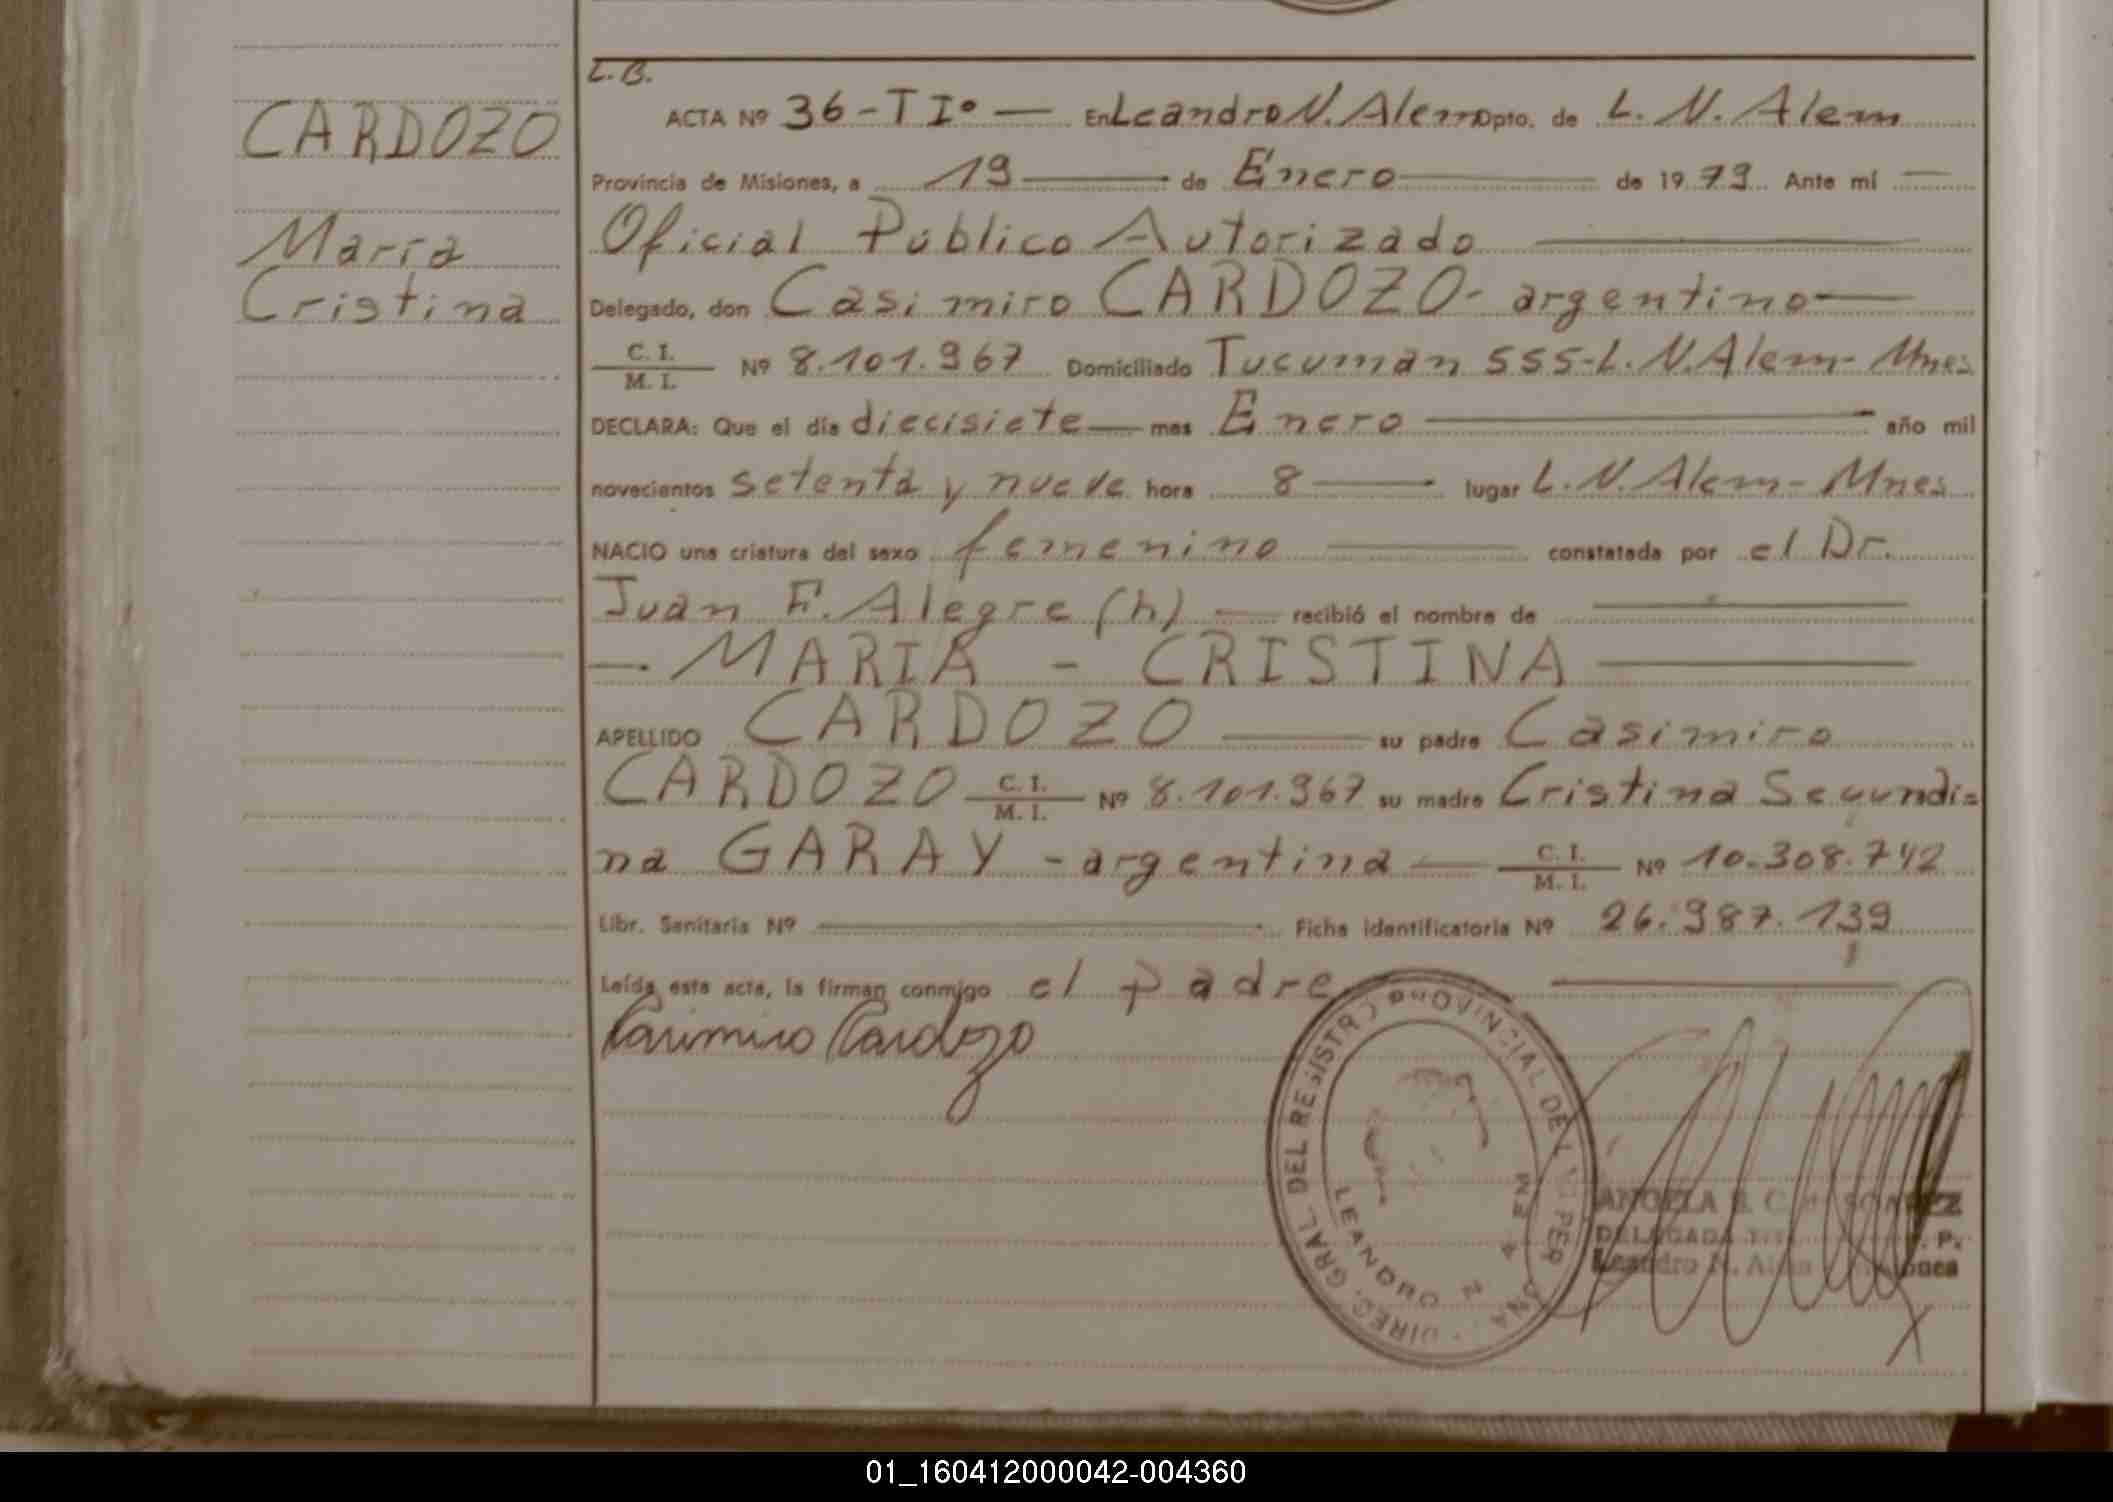 CARDOZO
María
Cristina
L.B.
ACTA Nº 36-TIº — En Leandro N. Alem Dpto. de L. N. Alem
Provincia de Misiones, a 19 — de Enero — de 1979. Ante mí —
Oficial Público Autorizado —
Delegado, don Casimiro CARDOZO- argentino—
C. I. / M. I. Nº 8.101.967 Domiciliado Tucuman 555-L.N.Alem- Mnes
DECLARA: Que el día diecisiete — mes Enero — año mil
novecientos setenta y nueve hora 8 — lugar L.N.Alem-Mnes
NACIO una criatura del sexo femenino — constatada por el Dr.
Juan F. Alegre (h) — recibió el nombre de —
— MARIA - CRISTINA —
APELLIDO CARDOZO — su padre Casimiro
CARDOZO C. I. / M. I. Nº 8.101.967 su madre Cristina Segundi=
na GARAY -argentina — C. I. / M. I. Nº 10.308.742
Libr. Sanitaria Nº — Ficha identificatoria Nº 26.987.139
Leída esta acta, la firman conmigo el padre —
Casimiro Cardozo
DIREC. GRAL. DEL REGISTRO PROVINCIAL DE
LEANDRO N. ALEM
ANGELA
DELEGADA
Leandro N. Alem
01_160412000042-004360